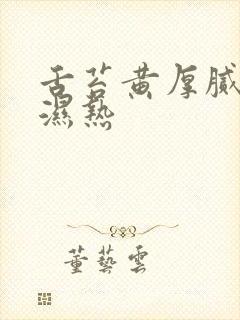 舌苔黄厚腻
濕熱
董藝雲